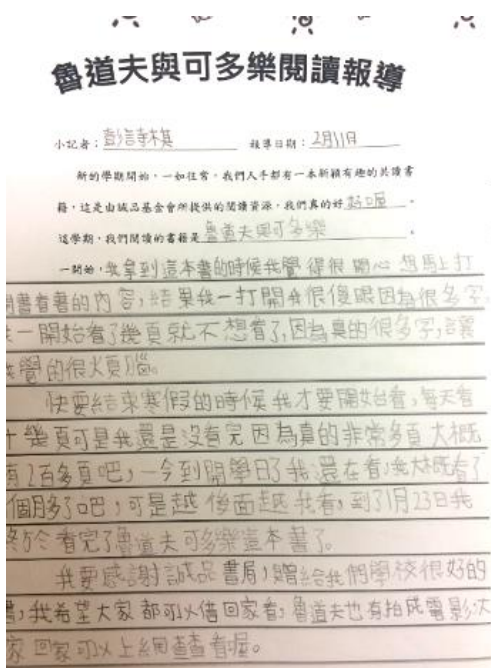 魯道夫與可多樂閱讀報導
小記者: 報導日期:2月11日
新的學期開始,一如往常,我們人手都有一本新穎有趣的共讀書
籍,這是由誠品基金會所提供的閱讀資源,我們真的好好喔。
這學期,我們閱讀的書籍是魯道夫與可多樂。
一開始,我拿到這本書的時候我覺得很開心 想馬上打
開書看著的內容,結果我一打開我很傻眼因為很多字,
一開始看了幾頁就不想看了,因為真的很多字,讓
我覺的很火頁腦。
快要結束寒假的時候我才要開始看,每天看
十幾頁可是我還是沒有完 因為真的非常多頁 大概
有2百多頁吧,一今到開學日了我還在看,我大概看了
個月多了吧,可是越後面越 我看,到了1月23日我
終於看完了魯道夫可多樂這本書了。
我要感謝誠品書局,贈給我們學校很好的
書,我希望大家都可以借回家看,魯道夫也有拍成電影,大
家回家可以上網查查看喔。